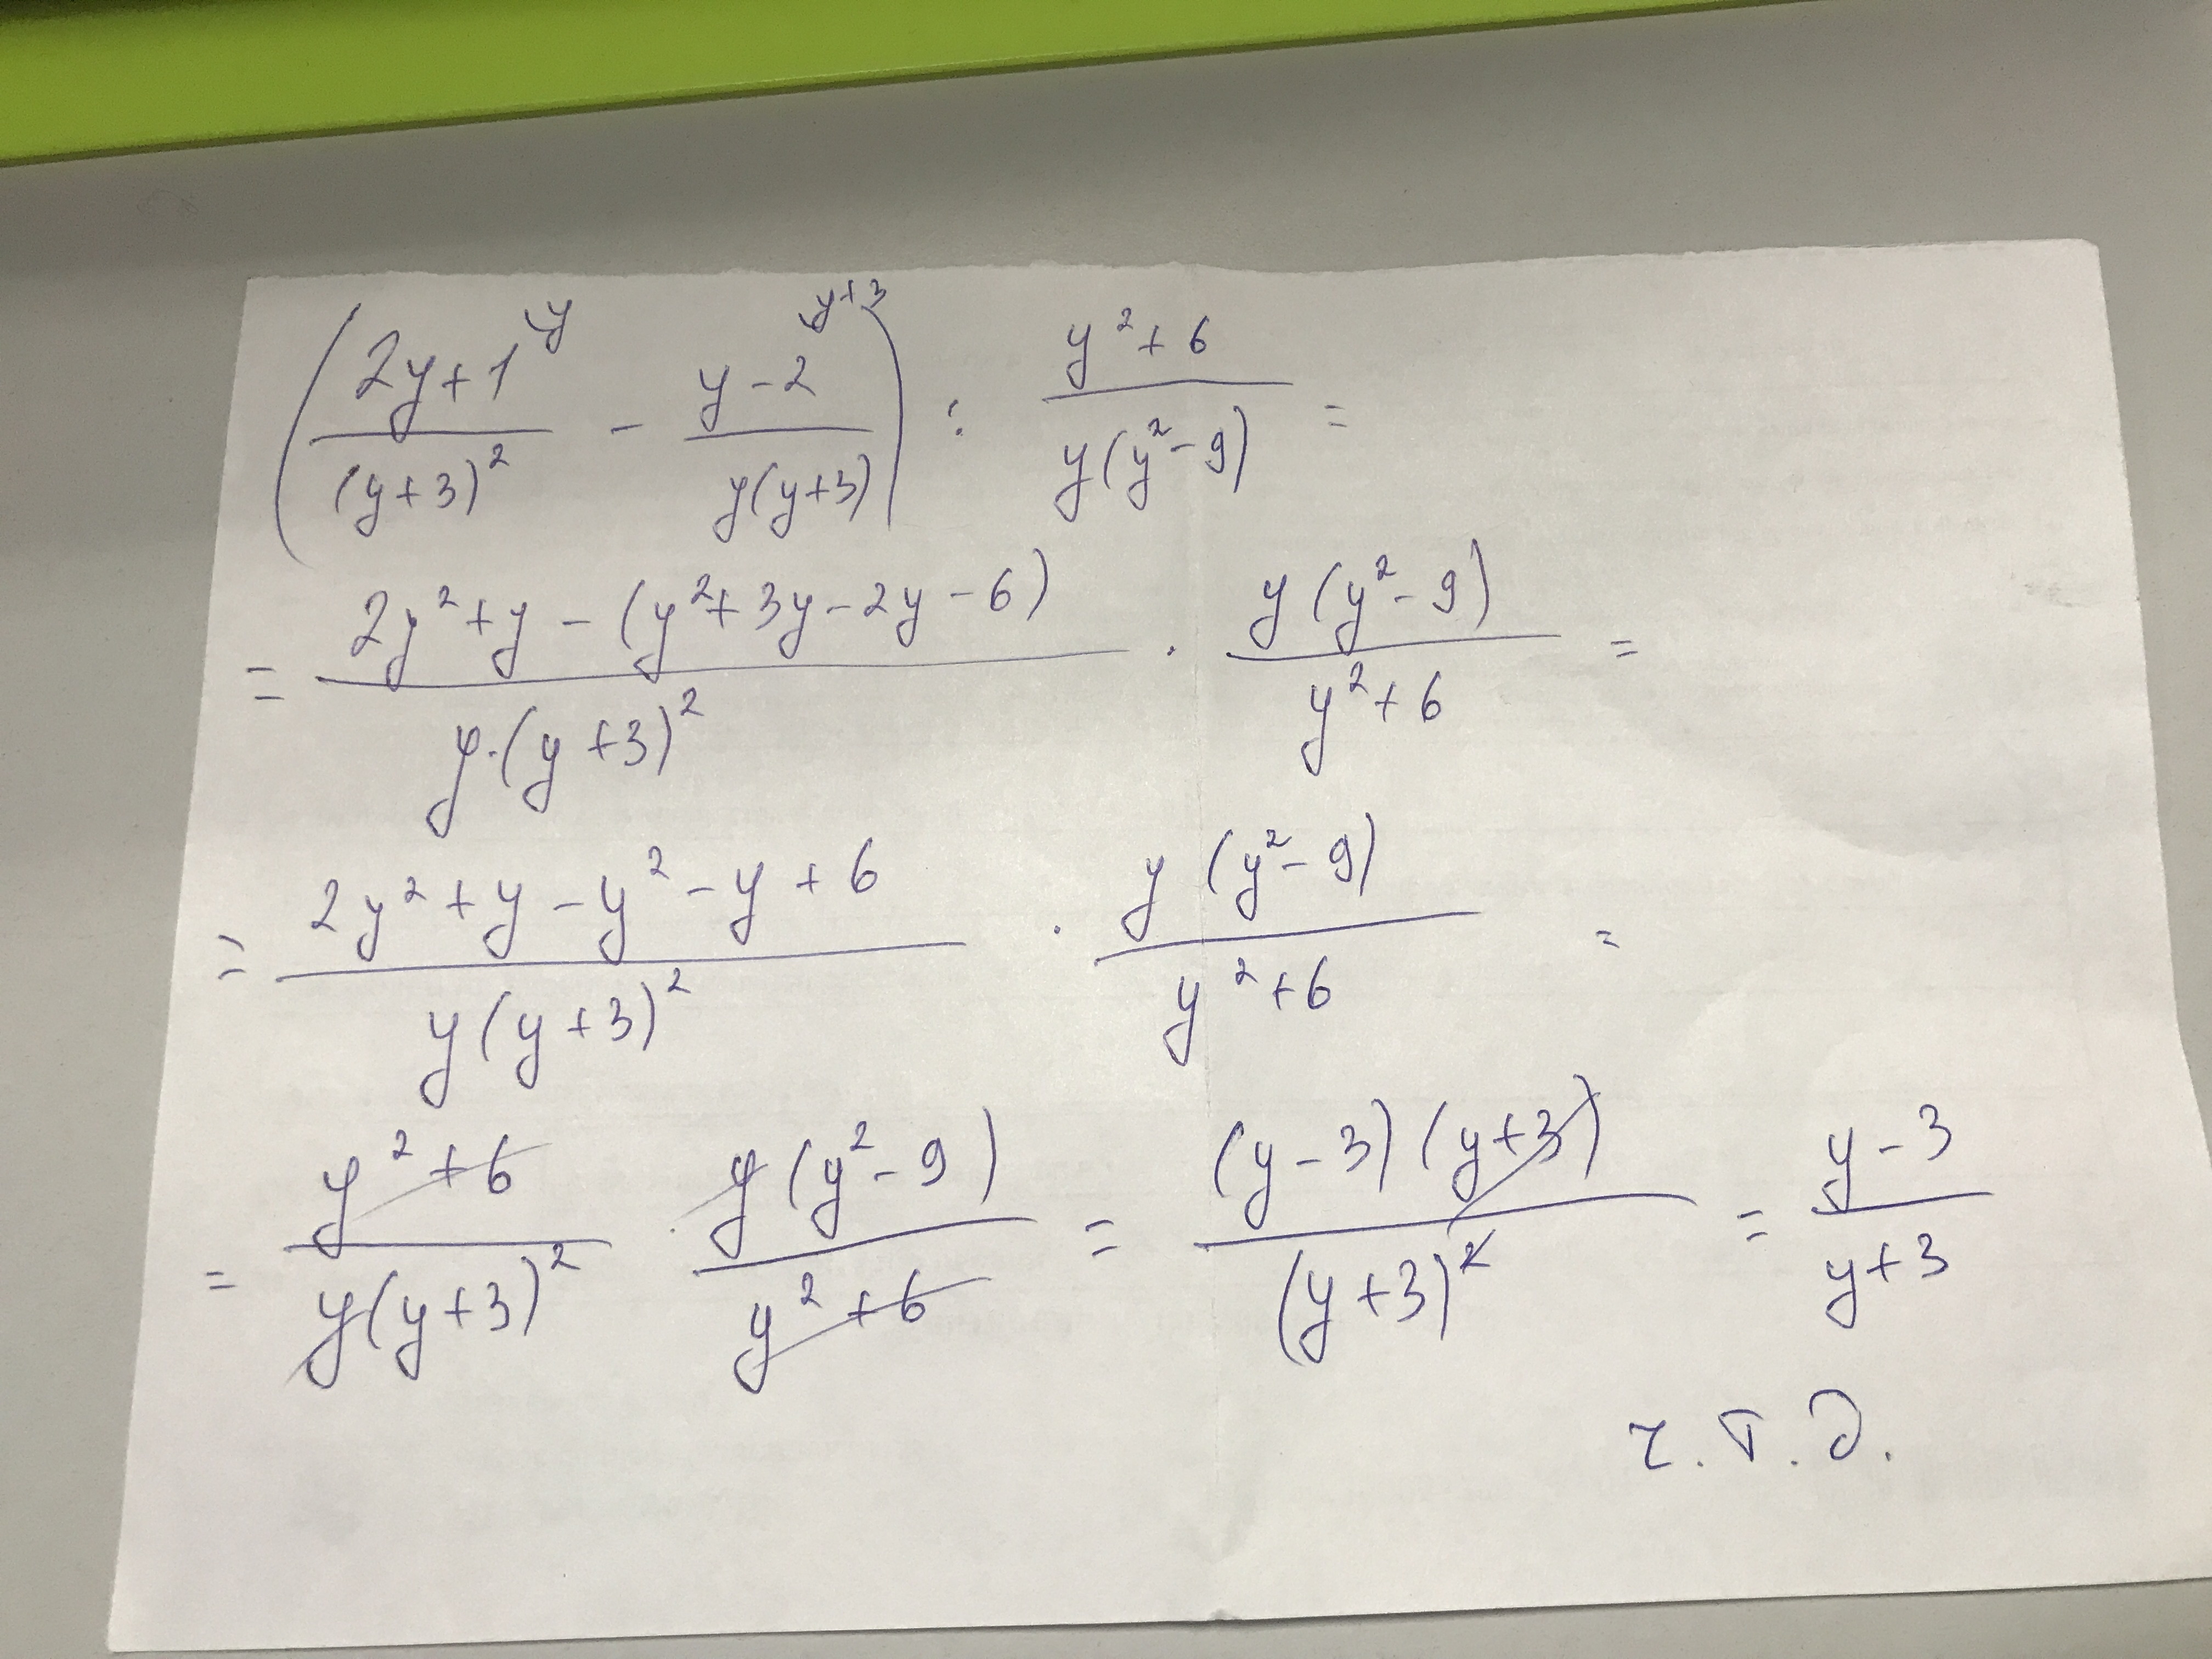 ( (2y+1)^y / (y+3)² − (y−2)^y+3 / y(y+3) ) : (y²+6) / y(y²−9) =
= (2y²+y−(y²+3y−2y−6)) / y·(y+3)² · y(y²−9) / (y²+6) =
= (2y²+y−y²−y+6) / y(y+3)² · y(y²−9) / (y²+6) =
= (y²+6) / y(y+3)² · y(y²−9) / (y²+6) = (y−3)(y+3) / (y+3)² = (y−3) / (y+3)
ч.т.д.